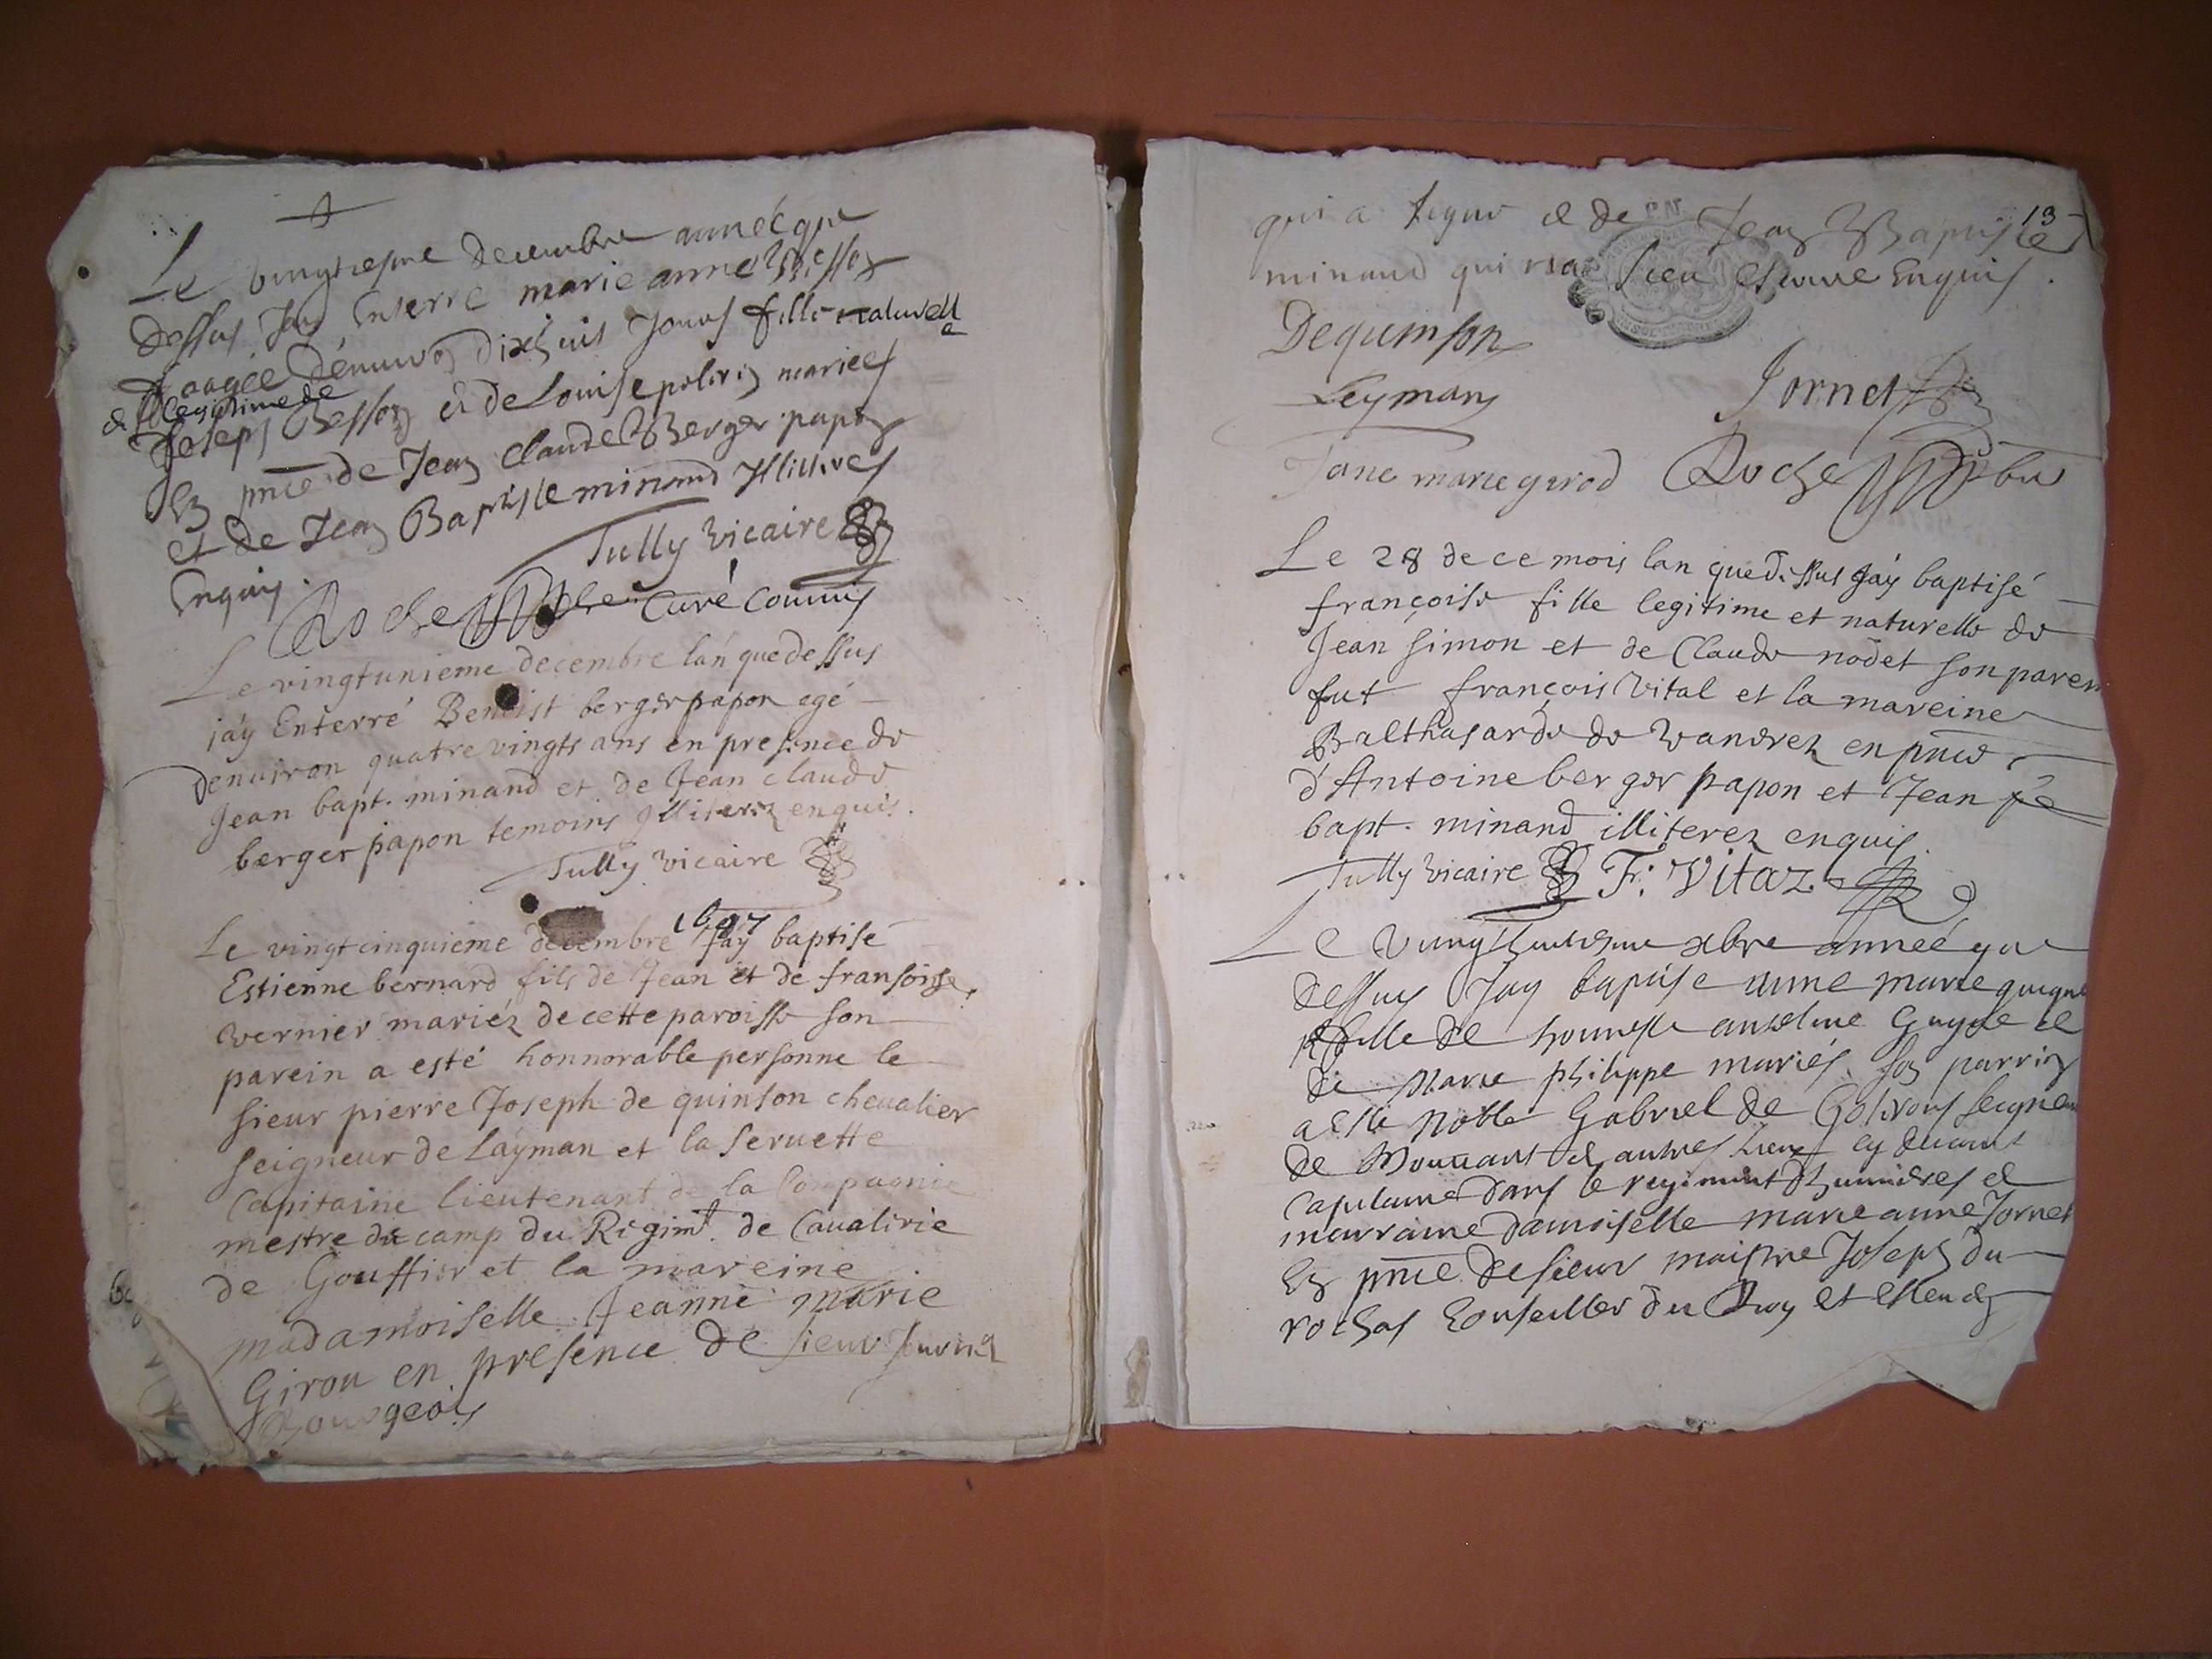 Le vingtiesme decembre année que
dessus Jay Enterré marie anne Besson
aagée denuiron dixhuit Jours fille naturelle
& legitime de
Joseph Besson et de Louise mariees
En pnce de Jean Claude Berger papon
et de Jean Baptiste minand Illiteres
Enquis.
Tully vicaire
Roche curé commis
Le vingtunieme decembre lan que dessus
jáy Enterré Benoist berger papon egé
denuiron quatre vingts ans en presence de
Jean bapt. minand et de Jean claude
berger papon temoins Illiterez enquis.
Tully vicaire
1697
Le vingtcinquieme decembre Jáy baptisé
Estienne bernard fils de Jean et de fransoise
vernier mariéz de cette paroisse son
parein a esté honnorable personne le
sieur pierre Joseph de quinson cheualier
seigneur de Láyman et la Seruette
Capitaine lieutenant de la Compagnie
mestre de camp du Regimt. de Caualirie
de Gouffier et la mareine
madamoiselle Jeanne marie
Girou en presence de sieur
Bourgeois
13
qui a signe & de Jean Baptiste
minand qui Enquis.
Dequinson
Leyman
Jornet
Jane marie girod Roche
Le 28 de ce mois lan que dessus Jáy baptisé
françoise fille legitime et naturelle de
Jean Simon et de Claude nodet son parein
fut françois Vital et la mareine
Balthasarde de Vanerez en pnce
d'Antoine berger papon et Jean
bapt. minand illiterez enquis.
Tully vicaire Fr: Vitaz
Le vingthuitiesme xbre année que
dessus Jay baptise anne marie
fille de honneste anselme Guyde et
de Marie philippe mariés son parrin
a esté Noble Gabriel de seigneur
de & autres lieux cy deuant
Capitaine dans le regiment dhumieres et
marraine damoiselle marie anne Jornet
En pnce de sieur maistre Joseph du
rochas Conseiller du Roy et